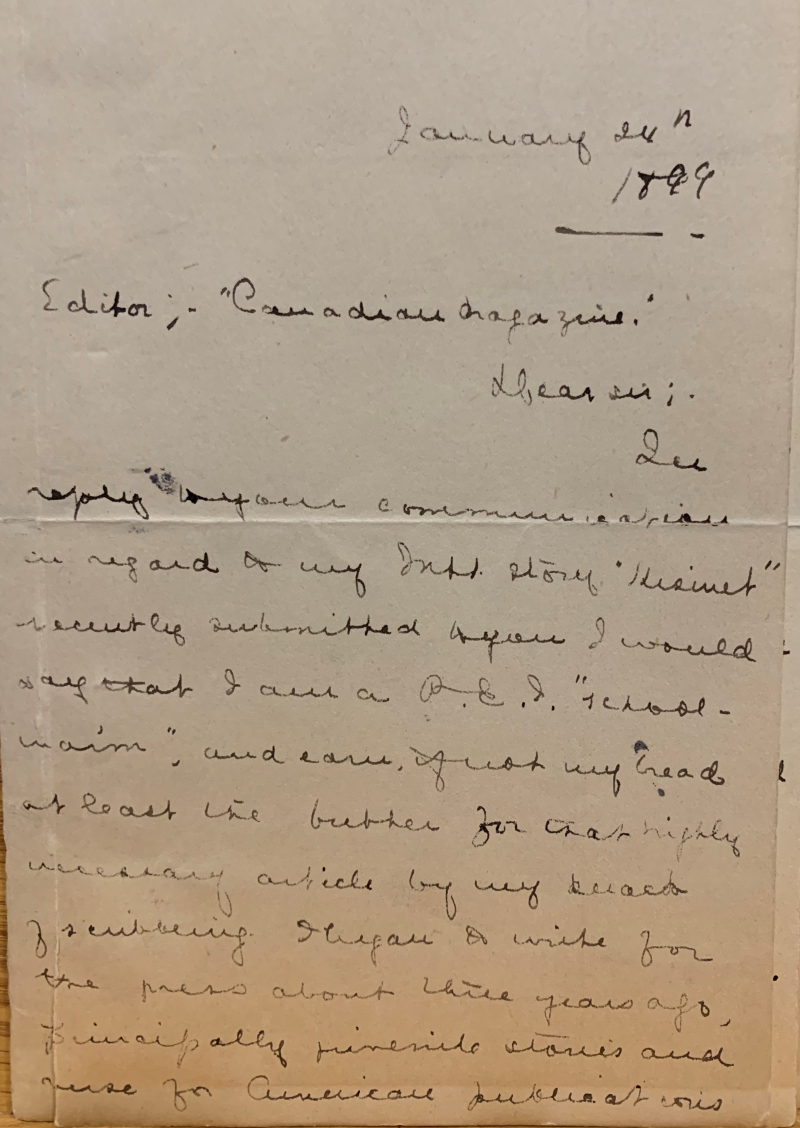 January 24th
1899
Editor;- "Canadian Magazine."
Dear sir;.
In
reply to your communication
in regard to my story "Kismet"
recently submitted to you I would
say that I am a P.E.I. "school-
ma'rm", and earn, if not my bread
at least the butter for that highly
necessary article by my knack
of scribbling. I began to write for
the press about three years ago,
principally juvenile stories and
verse for American publications